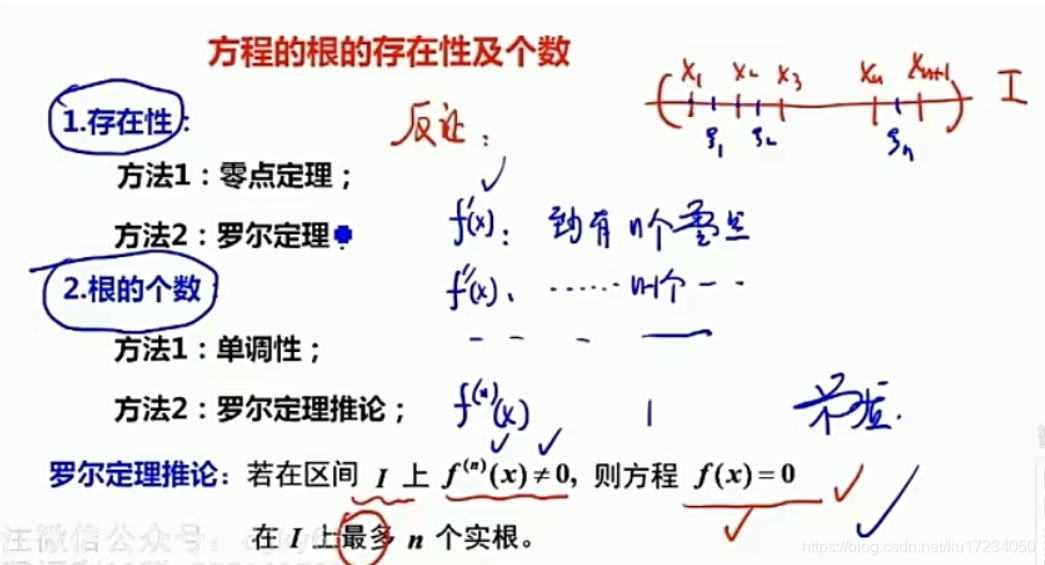 方程的根的存在性及个数
x₁ x₂ x₃ xₙ xₙ₊₁ I
ξ₁ ξ₂ ξₙ
1.存在性:
反证:
方法1:零点定理;
方法2:罗尔定理
f'(x): 至少有n个零点
2.根的个数
f''(x)、 …… n-1个 - -
方法1:单调性;
方法2:罗尔定理推论;
f⁽ⁿ⁾(x) 1 矛盾.
罗尔定理推论: 若在区间 I 上 f⁽ⁿ⁾(x)≠0, 则方程 f(x)=0
在 I 上最多 n 个实根。
注微信公众号:
https://blog.csdn.net/liu17234050